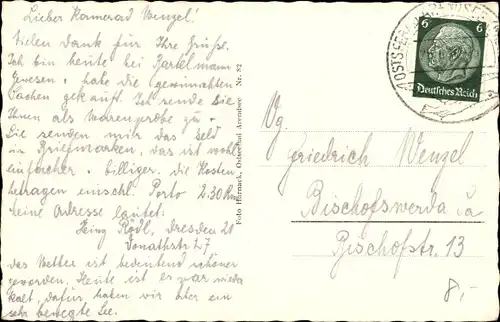 Lieber Kamerad Wenzel!
Vielen Dank für Ihre Grüße.
Ich bin heute bei Bartelmann
gewesen + habe die gewünschten
Sachen gekauft. Ich sende sie
Ihnen als Warenprobe zu +
Sie senden mir das Geld
in Briefmarken, das ist wohl
einfacher + billiger. die Kosten
betragen einschl. Porto 2.30 Rm
deine Adresse lautet:
Heinz Rödl, Dresden 21
Jonathstr 27
das Wetter ist bedeutend schöner
geworden. Heute ist es zwar wieder
kalt, dafür haben wir aber ein
sehr bewegte See.
Foto Harnack, Ostseebad Arendsee Nr. 82
OSTSEEBAD ARENDSEE
6 6
Deutsches Reich
Friedrich Wenzel
Bischofswerda Sa
Bischofstr. 13
8,-